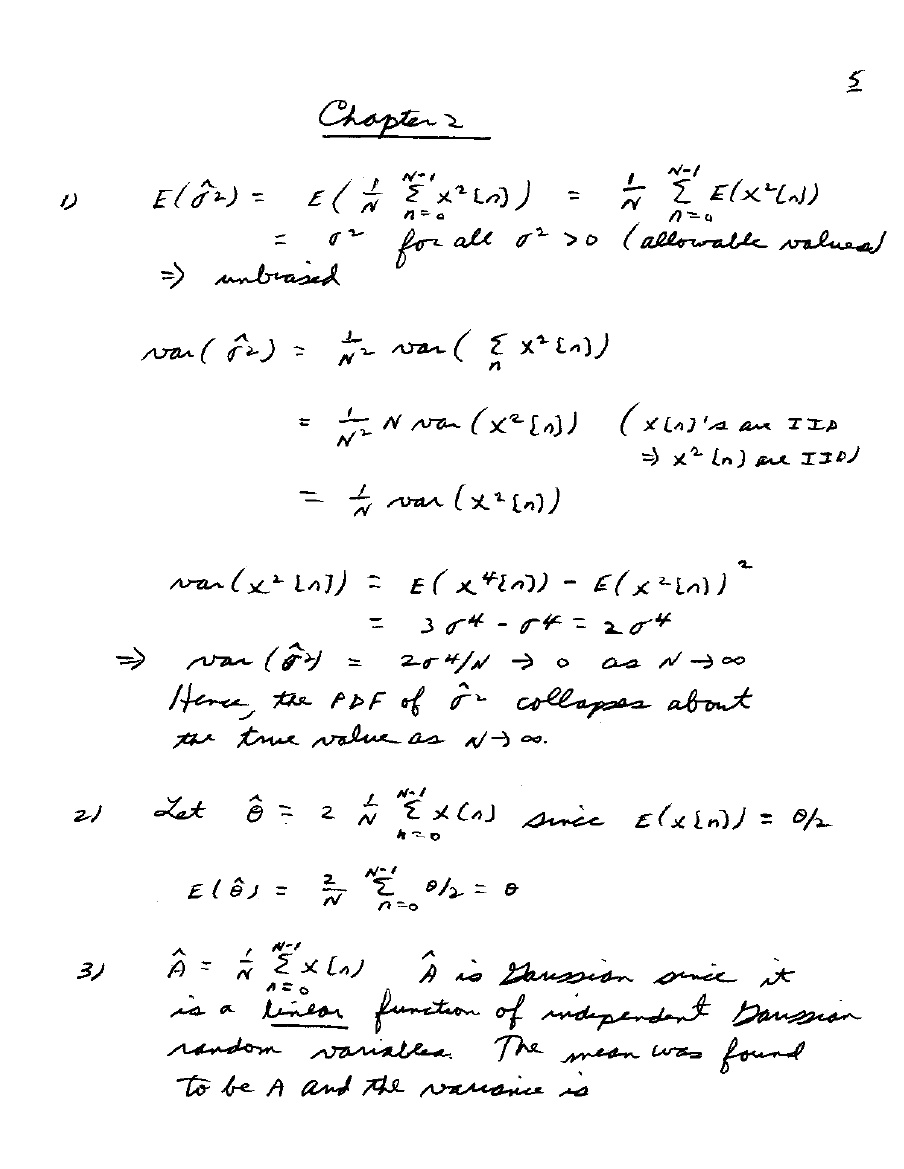 5
Chapter 2
1) E(σ̂²) = E( 1/N Σ_{n=0}^{N-1} x²[n]) = 1/N Σ_{n=0}^{N-1} E(x²[n])
= σ² for all σ² > 0 (allowable values)
⇒ unbiased
var(σ̂²) = 1/N² var( Σ_n x²[n])
= 1/N² N var(x²[n]) (x[n]'s are IID
⇒ x²[n] are IID)
= 1/N var(x²[n])
var(x²[n]) = E(x⁴[n]) - E(x²[n])²
= 3σ⁴ - σ⁴ = 2σ⁴
⇒ var(σ̂²) = 2σ⁴/N → 0 as N → ∞
Hence, the PDF of σ̂² collapses about
the true value as N → ∞.
2) Let θ̂ = 2 1/N Σ_{n=0}^{N-1} x[n] since E(x[n]) = θ/2
E(θ̂) = 2/N Σ_{n=0}^{N-1} θ/2 = θ
3) Â = 1/N Σ_{n=0}^{N-1} x[n] Â is Gaussian since it
is a linear function of independent Gaussian
random variables. The mean was found
to be A and the variance is